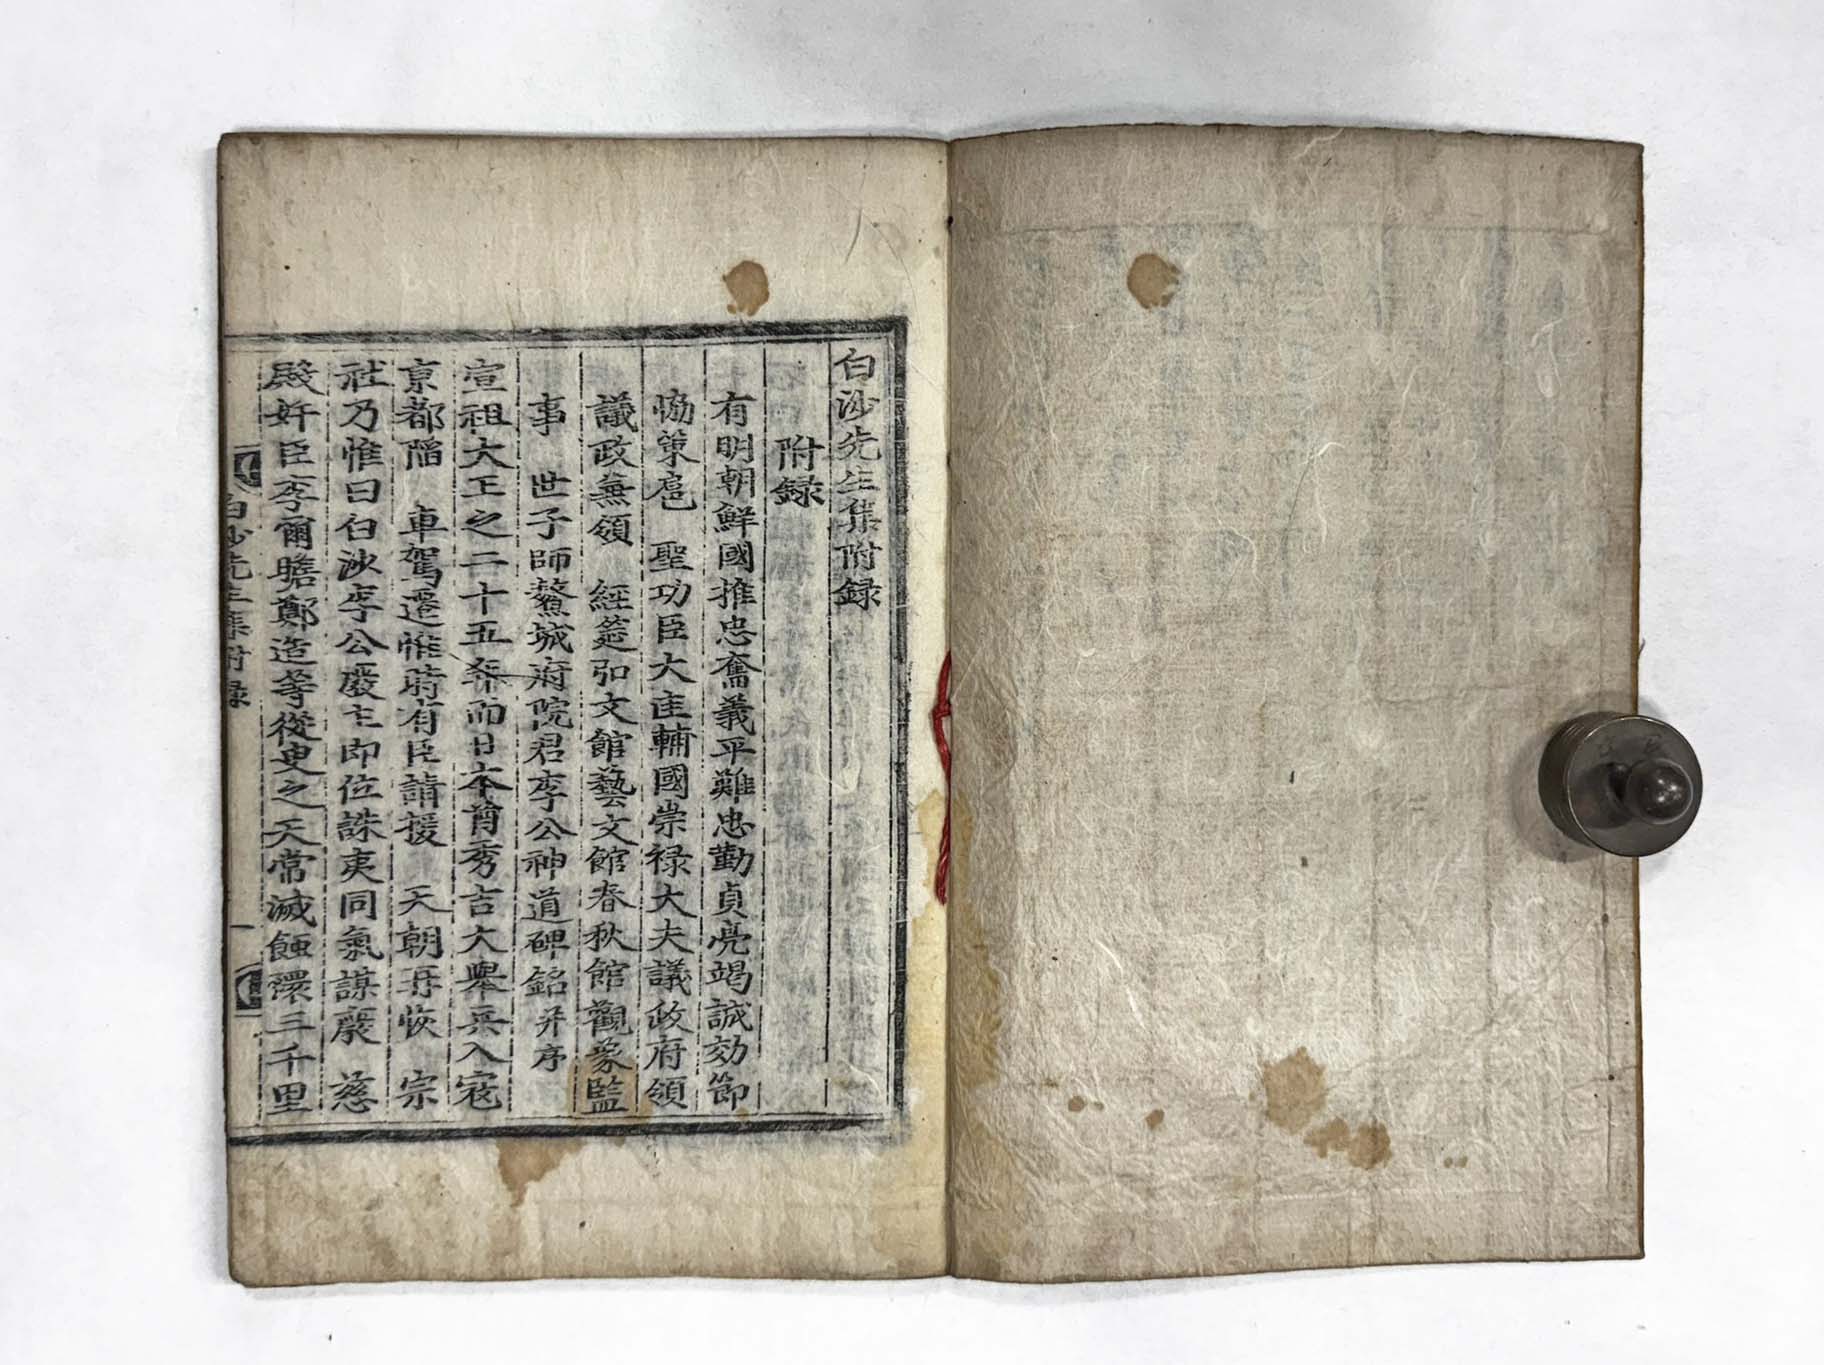 白沙先生集附録
附録
有明朝鮮國推忠奮義平難忠勤貞亮竭誠効節
協策扈 聖功臣大匡輔國崇禄大夫議政府領
議政兼領 經筵弘文館藝文館春秋館觀象監
事 世子師鰲城府院君李公神道碑銘并序
宣祖大王之二十五年而日本酋秀吉大舉兵入寇
京都陷 車駕遷惟時有臣請援 天朝再恢 宗
社乃惟曰白沙李公廢主即位誅夷同氣謀廢 慈
殿奸臣李爾瞻鄭造等從臾之天常滅蝕環三千里
白沙先生集附録 一